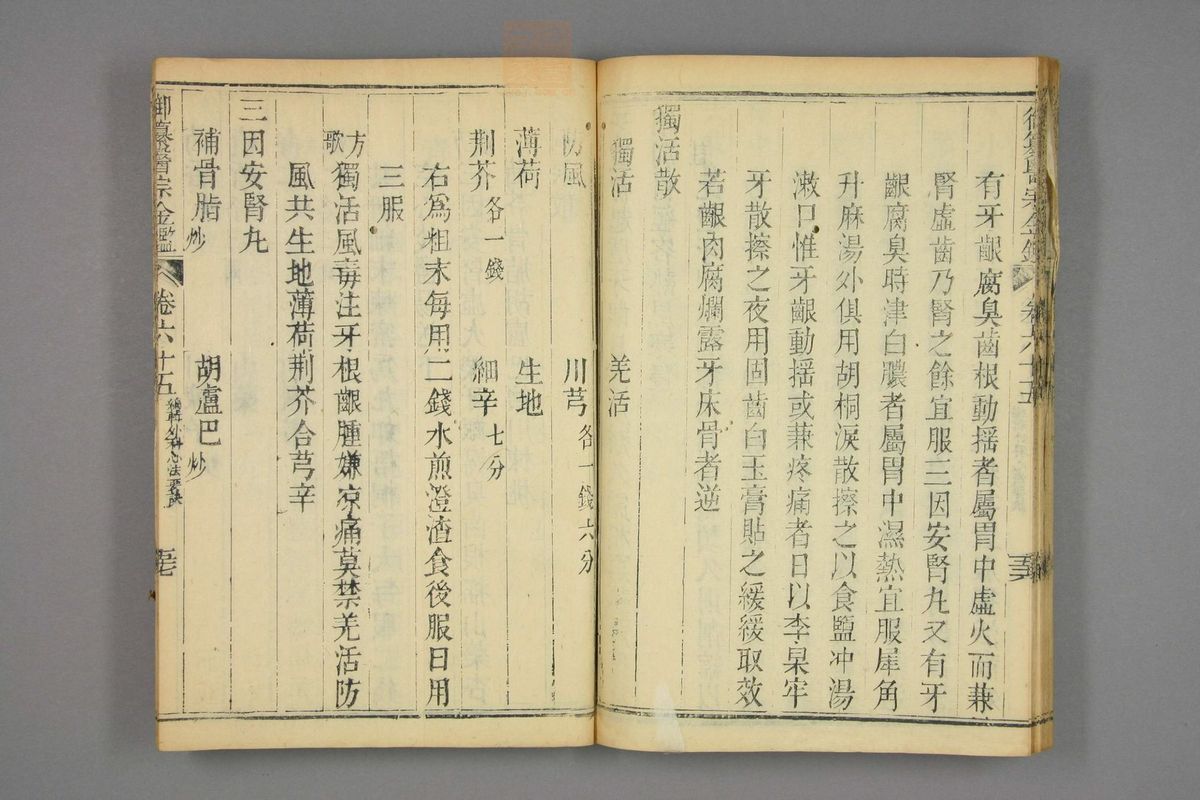 有牙齦腐臭齒根動揺者屬胃中虛火而兼
腎虛齒乃腎之餘宜服三因安腎丸又有牙
齦腐臭時津白膿者屬胃中濕熱宜服犀角
升麻湯外俱用胡桐淚散擦之以食鹽冲湯
漱口惟牙齦動揺或兼疼痛者日以李杲牢
牙散擦之夜用固齒白玉膏貼之緩緩取效
若齦肉腐爛露牙床骨者逆
獨活散
獨活 羌活
防風 川芎各一錢六分
薄荷 生地
荆芥各一錢 細辛七分
右爲粗末每用二錢水煎澄渣食後服日用
三服
方歌 獨活風毒注牙根齦腫嫌凉痛莫禁羌活防
風共生地薄荷荆芥合芎辛
三因安腎丸
補骨脂炒 胡盧巴炒
御纂醫宗金鑑 卷六十五 編輯外科心法要訣